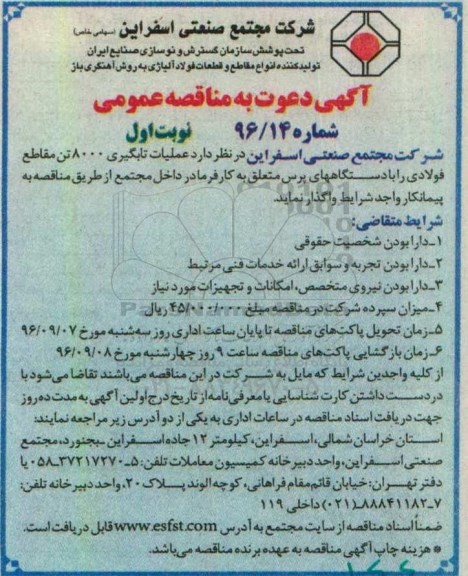 شرکت مجتمع صنعتی اسفراین (سهامی خاص)
تحت پوشش سازمان گسترش و نوسازی صنایع ایران
تولیدکننده انواع مقاطع و قطعات فولاد آلیاژی به روش آهنگری باز
آگهی دعوت به مناقصه عمومی
شماره ۹۶/۱۴ نوبت اول
شرکت مجتمع صنعتی اسفراین در نظر دارد عملیات تابگیری ۸۰۰۰ تن مقاطع
فولادی را با دستگاههای پرس متعلق به کارفرما در داخل مجتمع از طریق مناقصه به
پیمانکار واجد شرایط واگذار نماید.
شرایط متقاضی:
۱ـ دارا بودن شخصیت حقوقی
۲ـ دارا بودن تجربه و سوابق ارائه خدمات فنی مرتبط
۳ـ دارا بودن نیروی متخصص، امکانات و تجهیزات مورد نیاز
۴ـ میزان سپرده شرکت در مناقصه مبلغ ۴۵/۰۰۰/۰۰۰ ریال
۵ـ زمان تحویل پاکت‌های مناقصه تا پایان ساعت اداری روز سه‌شنبه مورخ ۹۶/۰۹/۰۷
۶ـ زمان بازگشایی پاکت‌های مناقصه ساعت ۹ روز چهارشنبه مورخ ۹۶/۰۹/۰۸
از کلیه واجدین شرایط که مایل به شرکت در این مناقصه می‌باشند تقاضا می‌شود با
در دست داشتن کارت شناسایی یا معرفی‌نامه از تاریخ درج اولین آگهی به مدت ده روز
جهت دریافت اسناد مناقصه در ساعات اداری به یکی از دو آدرس زیر مراجعه نمایند:
استان خراسان شمالی، اسفراین، کیلومتر ۱۲ جاده اسفراین ـ بجنورد، مجتمع
صنعتی اسفراین، واحد دبیرخانه کمیسیون معاملات تلفن: ۵ـ۳۷۲۱۷۲۷۰ـ۰۵۸ یا
دفتر تهران: خیابان قائم‌مقام فراهانی، کوچه الوند پلاک ۲۰، واحد دبیرخانه تلفن:
۷ـ۸۸۸۴۱۱۸۲ـ(۰۲۱) داخلی ۱۱۹
ضمناً اسناد مناقصه از سایت مجتمع به آدرس www.esfst.com قابل دریافت است.
* هزینه چاپ آگهی مناقصه به عهده برنده مناقصه می‌باشد.